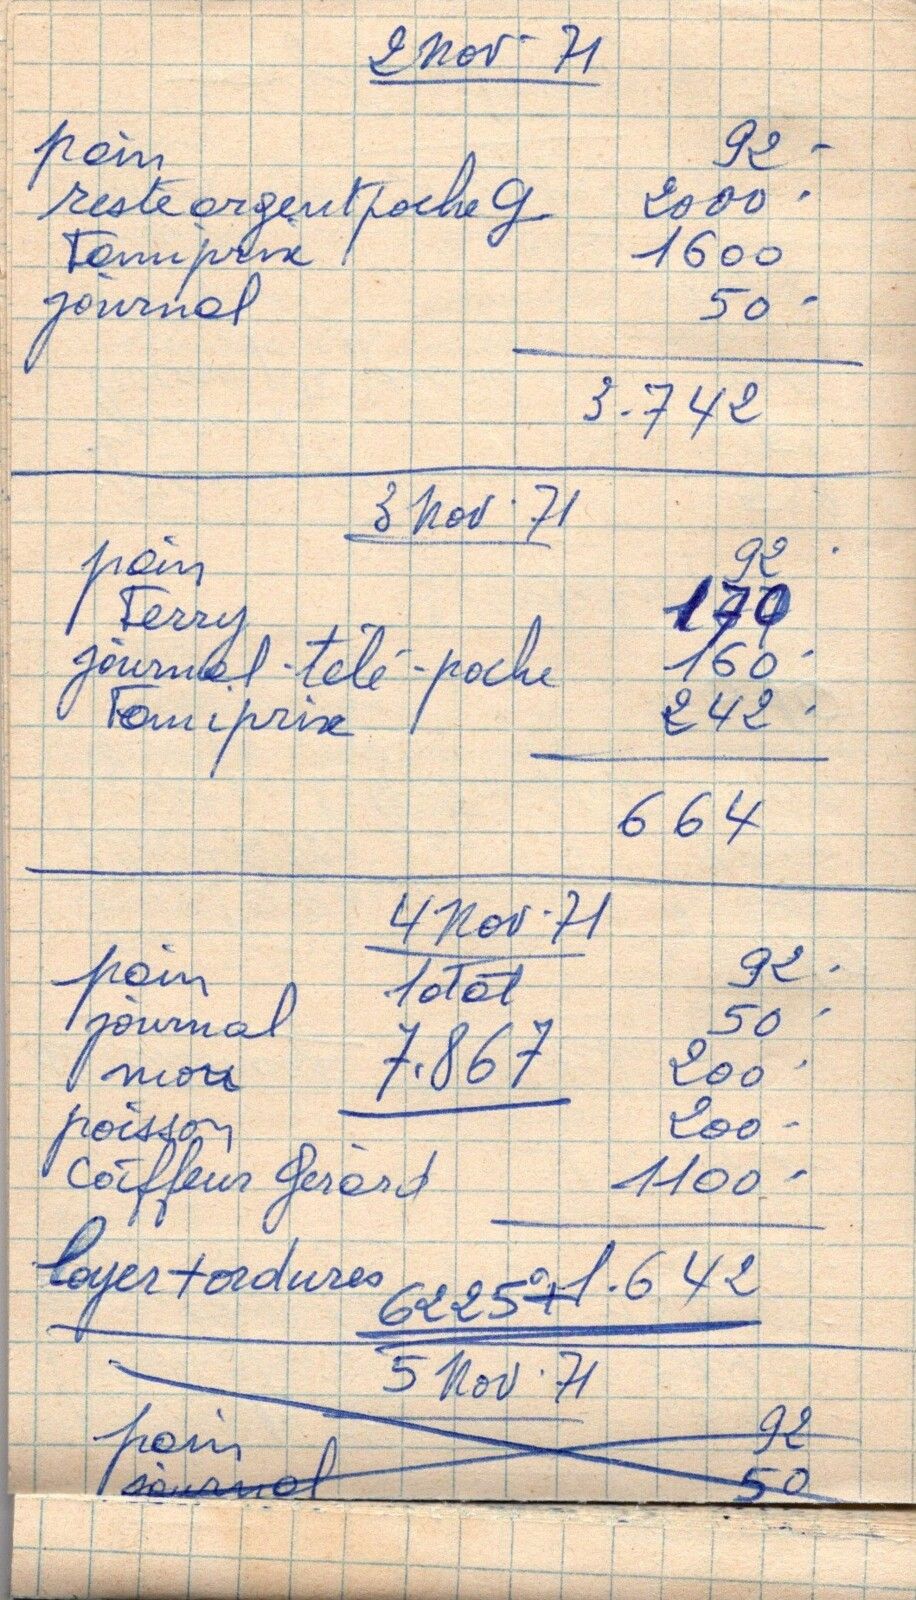 2 Nov. 71
pain 92 -
reste argent poche G 2000 -
Famiprix 1600
journal 50 -
3.742
3 Nov. 71
pain 92 -
Ferry 170
journal - télé - poche 160 -
Famiprix 242 -
664
4 Nov. 71
pain 1 dtôt 92 -
journal 50 -
7.867 200 -
poisson 200 -
Coiffeur Gérard 1100 -
loyer + ordures 6225° + 1.642
5 Nov. 71
pain 92
journal 50